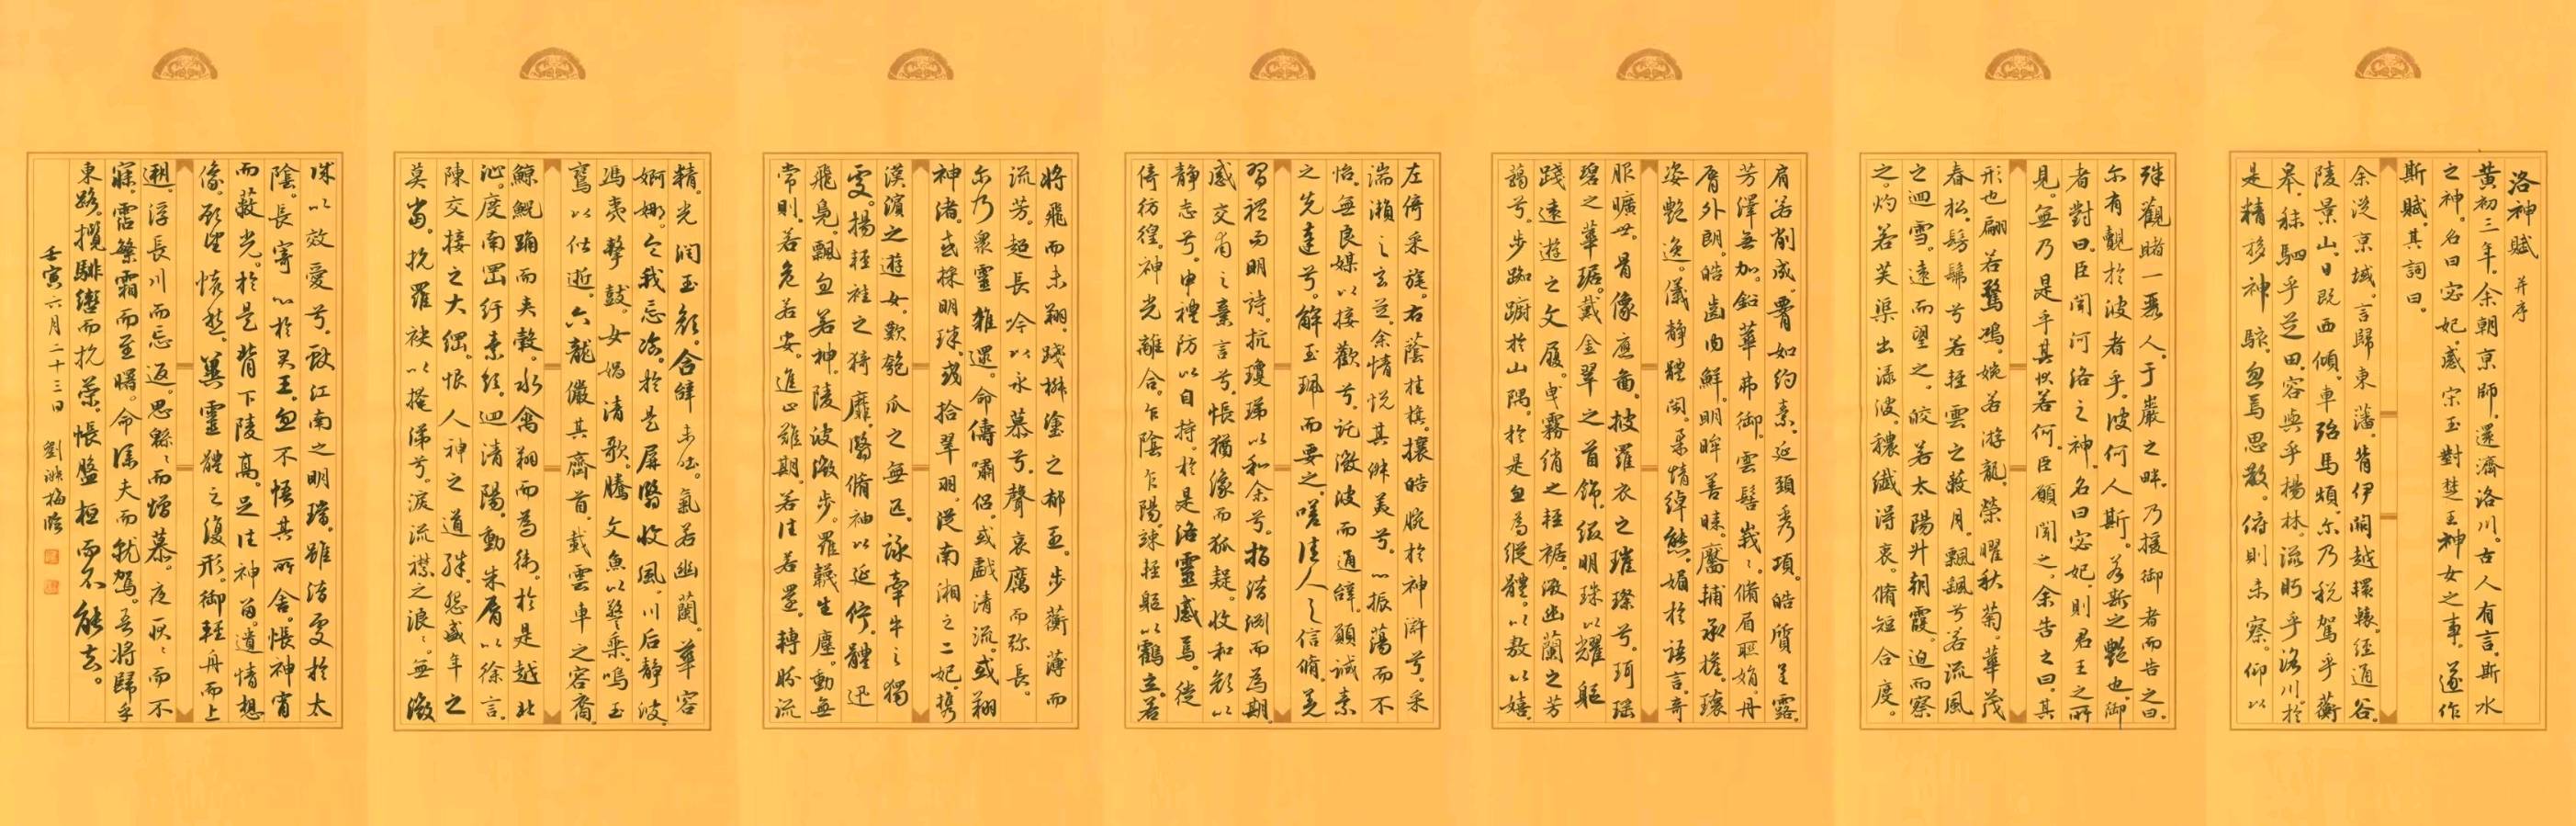 洛神賦 并序
黃初三年。余朝京師。還濟洛川。古人有言。斯水
之神。名曰宓妃。感宋玉對楚王神女之事。遂作
斯賦。其詞曰。
余從京域。言歸東藩。背伊闕越轘轅。經通谷。
陵景山。日既西傾。車殆馬煩。尔乃稅駕乎蘅
皋。秣駟乎芝田。容與乎楊林。流眄乎洛川。於
是精移神駭。忽焉思散。俯則未察。仰以
殊觀睹一麗人。于巖之畔。乃援御者而告之曰。
尔有覿於彼者乎。彼何人斯。若斯之艷也。御
者對曰。臣聞河洛之神。名曰宓妃。則君王之所
見。無乃是乎其狀若何。臣願聞之。余告之曰。其
形也翩若驚鴻。婉若游龍。榮曜秋菊。華茂
春松。髣髴兮若輕雲之蔽月。飄颻兮若流風
之迴雪。遠而望之。皎若太陽升朝霞。迫而察
之。灼若芙渠出渌波。穠纖得衷。脩短合度。
肩若削成。腰如約素。延頸秀項。皓質呈露。
芳澤無加。鉛華弗御。雲髻峩〻。脩眉聯娟。丹
脣外朗。皓齒内鮮。明眸善睞。靨輔承權。瓌
姿艷逸。儀靜體閑。柔情綽態。媚於語言。奇
服曠世。骨像應圖。披羅衣之璀璨兮。珥瑶
碧之華琚。戴金翠之首飾。綴明珠以耀軀
踐遠遊之文履。曳霧綃之輕裾。微幽蘭之芳
藹兮。步踟躕於山隅。於是忽焉縱體。以敖以嬉。
左倚采旄。右蔭桂旗。攘皓腕於神滸兮。采
湍瀨之玄芝。余情悅其淑美兮。心振蕩而不
怡。無良媒以接歡兮。託微波而通辭。願誠素
之先達兮。解玉珮而要之。嗟佳人之信脩。羌
習禮而明詩。抗瓊珶以和余兮。指潛淵而為期。
感交甫之棄言兮。悵猶豫而狐疑。收和顏以
靜志兮。申禮防以自持。於是洛靈感焉。徙
倚彷徨。神光離合。乍陰乍陽。竦輕軀以鶴立。若
將飛而未翔。踐椒塗之郁烈。步蘅薄而
流芳。超長吟以永慕兮。聲哀厲而弥長。
尔乃眾靈雜遝。命儔嘯侣。或戲清流。或翔
神渚。或採明珠。或拾翠羽。從南湘之二妃。攜
漢濱之遊女。歎匏瓜之無匹。詠牽牛之獨
處。揚輕袿之猗靡。翳脩袖以延佇。體迅
飛鳧。飄忽若神。陵波微步。羅襪生塵。動無
常則。若危若安。進止難期。若往若還。轉眄流
精。光潤玉顏。含辭未吐。氣若幽蘭。華容
婀娜。令我忘湌。於是屏翳收風。川后靜波。
馮夷擊鼓。女媧清歌。騰文魚以警乘。鳴玉
鸞以偕逝。六龍儼其齊首。載雲車之容裔。
鯨鯢踊而夾轂。水禽翔而為衛。於是越北
沚。度南岡。紆素領。迴清陽。動朱脣以徐言。
陳交接之大綱。恨人神之道殊。怨盛年之
莫當。抗羅袂以掩涕兮。淚流襟之浪〻。無微
情以效愛兮。獻江南之明璫。雖潛處於太
陰。長寄心於君王。忽不悟其所舍。悵神宵
而蔽光。於是背下陵高。足往神留。遺情想
像。顧望懷愁。冀靈體之復形。御輕舟而上
遡。浮長川而忘返。思緜〻而增慕。夜耿〻而不
寐。霑繁霜而至曙。命僕夫而就駕。吾將歸乎
東路。攬騑轡而抗策。悵盤桓而不能去。
壬寅六月二十三日 劉淑梅臨